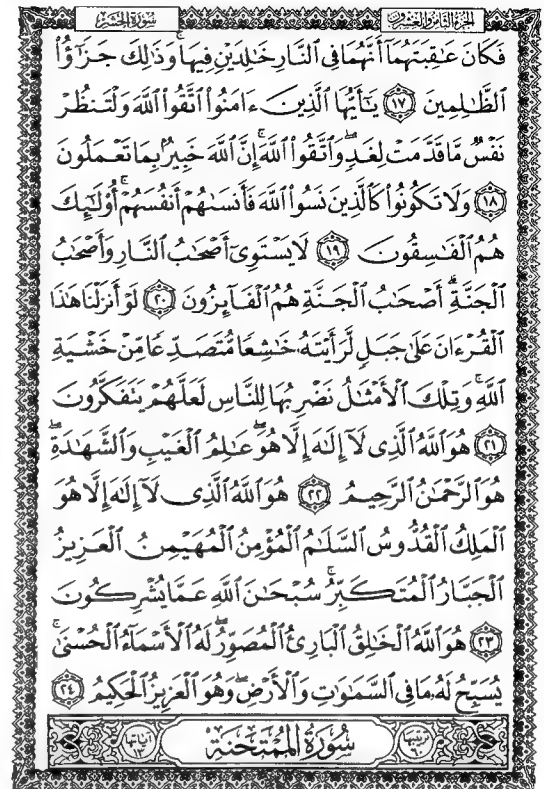 الجزء الثامن والعشرون سورة الحشر
فَكَانَ عَٰقِبَتَهُمَآ أَنَّهُمَا فِي ٱلنَّارِ خَٰلِدَيۡنِ فِيهَاۚ وَذَٰلِكَ جَزَٰٓؤُاْ
ٱلظَّٰلِمِينَ ١٧ يَٰٓأَيُّهَا ٱلَّذِينَ ءَامَنُواْ ٱتَّقُواْ ٱللَّهَ وَلۡتَنظُرۡ
نَفۡسٞ مَّا قَدَّمَتۡ لِغَدٖۖ وَٱتَّقُواْ ٱللَّهَۚ إِنَّ ٱللَّهَ خَبِيرُۢ بِمَا تَعۡمَلُونَ
١٨ وَلَا تَكُونُواْ كَٱلَّذِينَ نَسُواْ ٱللَّهَ فَأَنسَىٰهُمۡ أَنفُسَهُمۡۚ أُوْلَٰٓئِكَ
هُمُ ٱلۡفَٰسِقُونَ ١٩ لَا يَسۡتَوِيٓ أَصۡحَٰبُ ٱلنَّارِ وَأَصۡحَٰبُ
ٱلۡجَنَّةِۚ أَصۡحَٰبُ ٱلۡجَنَّةِ هُمُ ٱلۡفَآئِزُونَ ٢٠ لَوۡ أَنزَلۡنَا هَٰذَا
ٱلۡقُرۡءَانَ عَلَىٰ جَبَلٖ لَّرَأَيۡتَهُۥ خَٰشِعٗا مُّتَصَدِّعٗا مِّنۡ خَشۡيَةِ
ٱللَّهِۚ وَتِلۡكَ ٱلۡأَمۡثَٰلُ نَضۡرِبُهَا لِلنَّاسِ لَعَلَّهُمۡ يَتَفَكَّرُونَ
٢١ هُوَ ٱللَّهُ ٱلَّذِي لَآ إِلَٰهَ إِلَّا هُوَۖ عَٰلِمُ ٱلۡغَيۡبِ وَٱلشَّهَٰدَةِۖ
هُوَ ٱلرَّحۡمَٰنُ ٱلرَّحِيمُ ٢٢ هُوَ ٱللَّهُ ٱلَّذِي لَآ إِلَٰهَ إِلَّا هُوَ
ٱلۡمَلِكُ ٱلۡقُدُّوسُ ٱلسَّلَٰمُ ٱلۡمُؤۡمِنُ ٱلۡمُهَيۡمِنُ ٱلۡعَزِيزُ
ٱلۡجَبَّارُ ٱلۡمُتَكَبِّرُۚ سُبۡحَٰنَ ٱللَّهِ عَمَّا يُشۡرِكُونَ
٢٣ هُوَ ٱللَّهُ ٱلۡخَٰلِقُ ٱلۡبَارِئُ ٱلۡمُصَوِّرُۖ لَهُ ٱلۡأَسۡمَآءُ ٱلۡحُسۡنَىٰۚ
يُسَبِّحُ لَهُۥ مَا فِي ٱلسَّمَٰوَٰتِ وَٱلۡأَرۡضِۖ وَهُوَ ٱلۡعَزِيزُ ٱلۡحَكِيمُ ٢٤
ترتيبها ٦٠ سُورَةُ الۡمُمۡتَحنَةِ آياتها ١٣